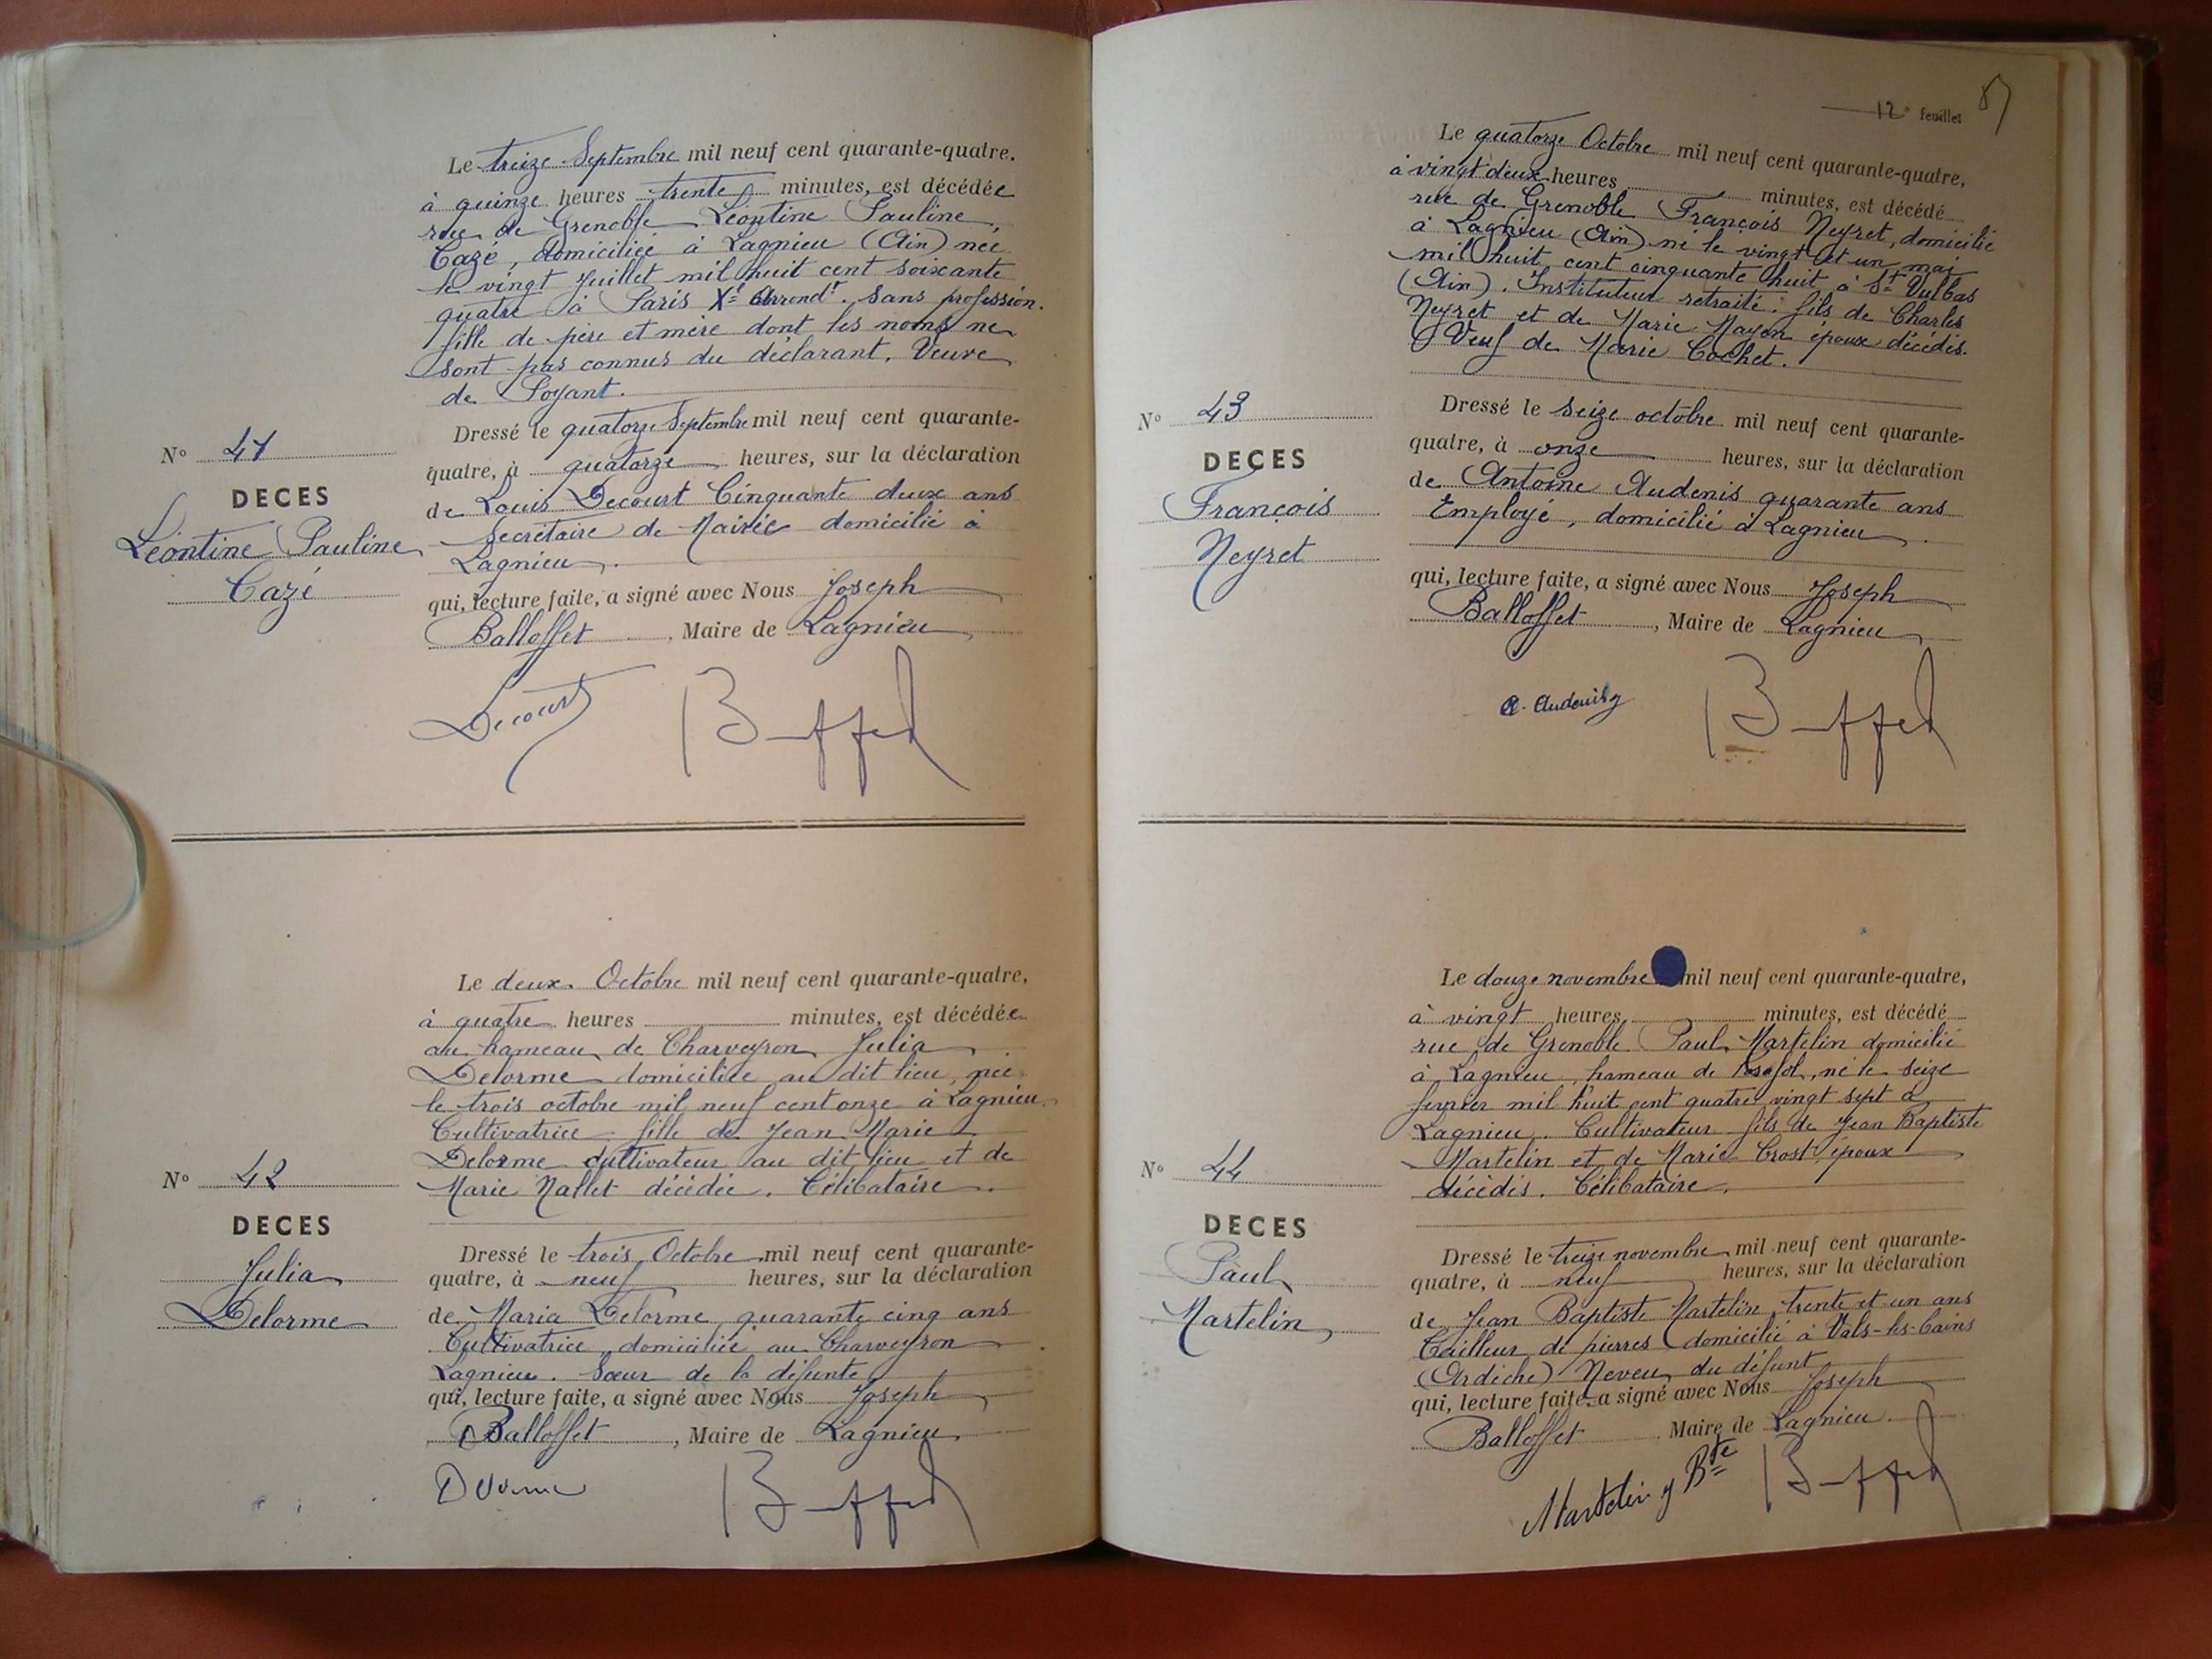 Le treize Septembre mil neuf cent quarante-quatre.
à quinze heures trente minutes, est décédée
rue de Grenoble Léontine Pauline
Cazé, domiciliée à Lagnieu (Ain) née
le vingt Juillet mil huit cent soixante
quatre à Paris Xe Arrondt. Sans profession.
fille de père et mère dont les noms ne
sont pas connus du déclarant. Veuve
de Poyant.
Dressé le quatorze Septembre mil neuf cent quarante-
quatre, à quatorze heures, sur la déclaration
de Louis Decourt Cinquante deux ans
Secrétaire de Mairie domicilié à
Lagnieu.
qui, lecture faite, a signé avec Nous Joseph
Balloffet, Maire de Lagnieu
Decourt
N° 41
DECES
Léontine Pauline
Cazé
Le deux Octobre mil neuf cent quarante-quatre,
à quatre heures minutes, est décédée
au hameau de Charveyron Julia
Delorme domiciliée au dit lieu, née
le trois octobre mil neuf cent onze à Lagnieu.
Cultivatrice fille de Jean Marie
Delorme cultivateur au dit lieu et de
Marie Nallet décédée. Célibataire.
N° 42
DECES
Julia
Delorme
Dressé le trois Octobre mil neuf cent quarante-
quatre, à neuf heures, sur la déclaration
de Maria Delorme quarante cinq ans
Cultivatrice domiciliée au Charveyron
Lagnieu. Sœur de la défunte
qui, lecture faite, a signé avec Nous Joseph
Balloffet, Maire de Lagnieu
12e feuillet
Le quatorze Octobre mil neuf cent quarante-quatre,
à vingt deux heures minutes, est décédé
rue de Grenoble François Neyret, domicilié
à Lagnieu (Ain) né le vingt et un mai
mil huit cent cinquante huit à St Vulbas
(Ain). Instituteur retraité. fils de Charles
Neyret et de Marie Mayon époux décédés.
Veuf de Marie Cochet.
N° 43
DECES
François
Neyret
Dressé le seize octobre mil neuf cent quarante-
quatre, à onze heures, sur la déclaration
de Antoine Audenis quarante ans
Employé, domicilié à Lagnieu.
qui, lecture faite, a signé avec Nous Joseph
Balloffet, Maire de Lagnieu
Le douze novembre mil neuf cent quarante-quatre,
à vingt heures minutes, est décédé
rue de Grenoble Paul Martelin domicilié
à Lagnieu, hameau de né le seize
février mil huit cent quatre vingt sept à
Lagnieu. Cultivateur fils de Jean Baptiste
Martelin et de Marie Crost époux
décédés. Célibataire.
N° 44
DECES
Paul
Martelin
Dressé le treize novembre mil neuf cent quarante-
quatre, à neuf heures, sur la déclaration
de Jean Baptiste Martelin, trente et un ans
Tailleur de pierres domicilié à Vals-les-bains
(Ardèche) Neveu du défunt
qui, lecture faite, a signé avec Nous Joseph
Balloffet Maire de Lagnieu
Martelin J Bte